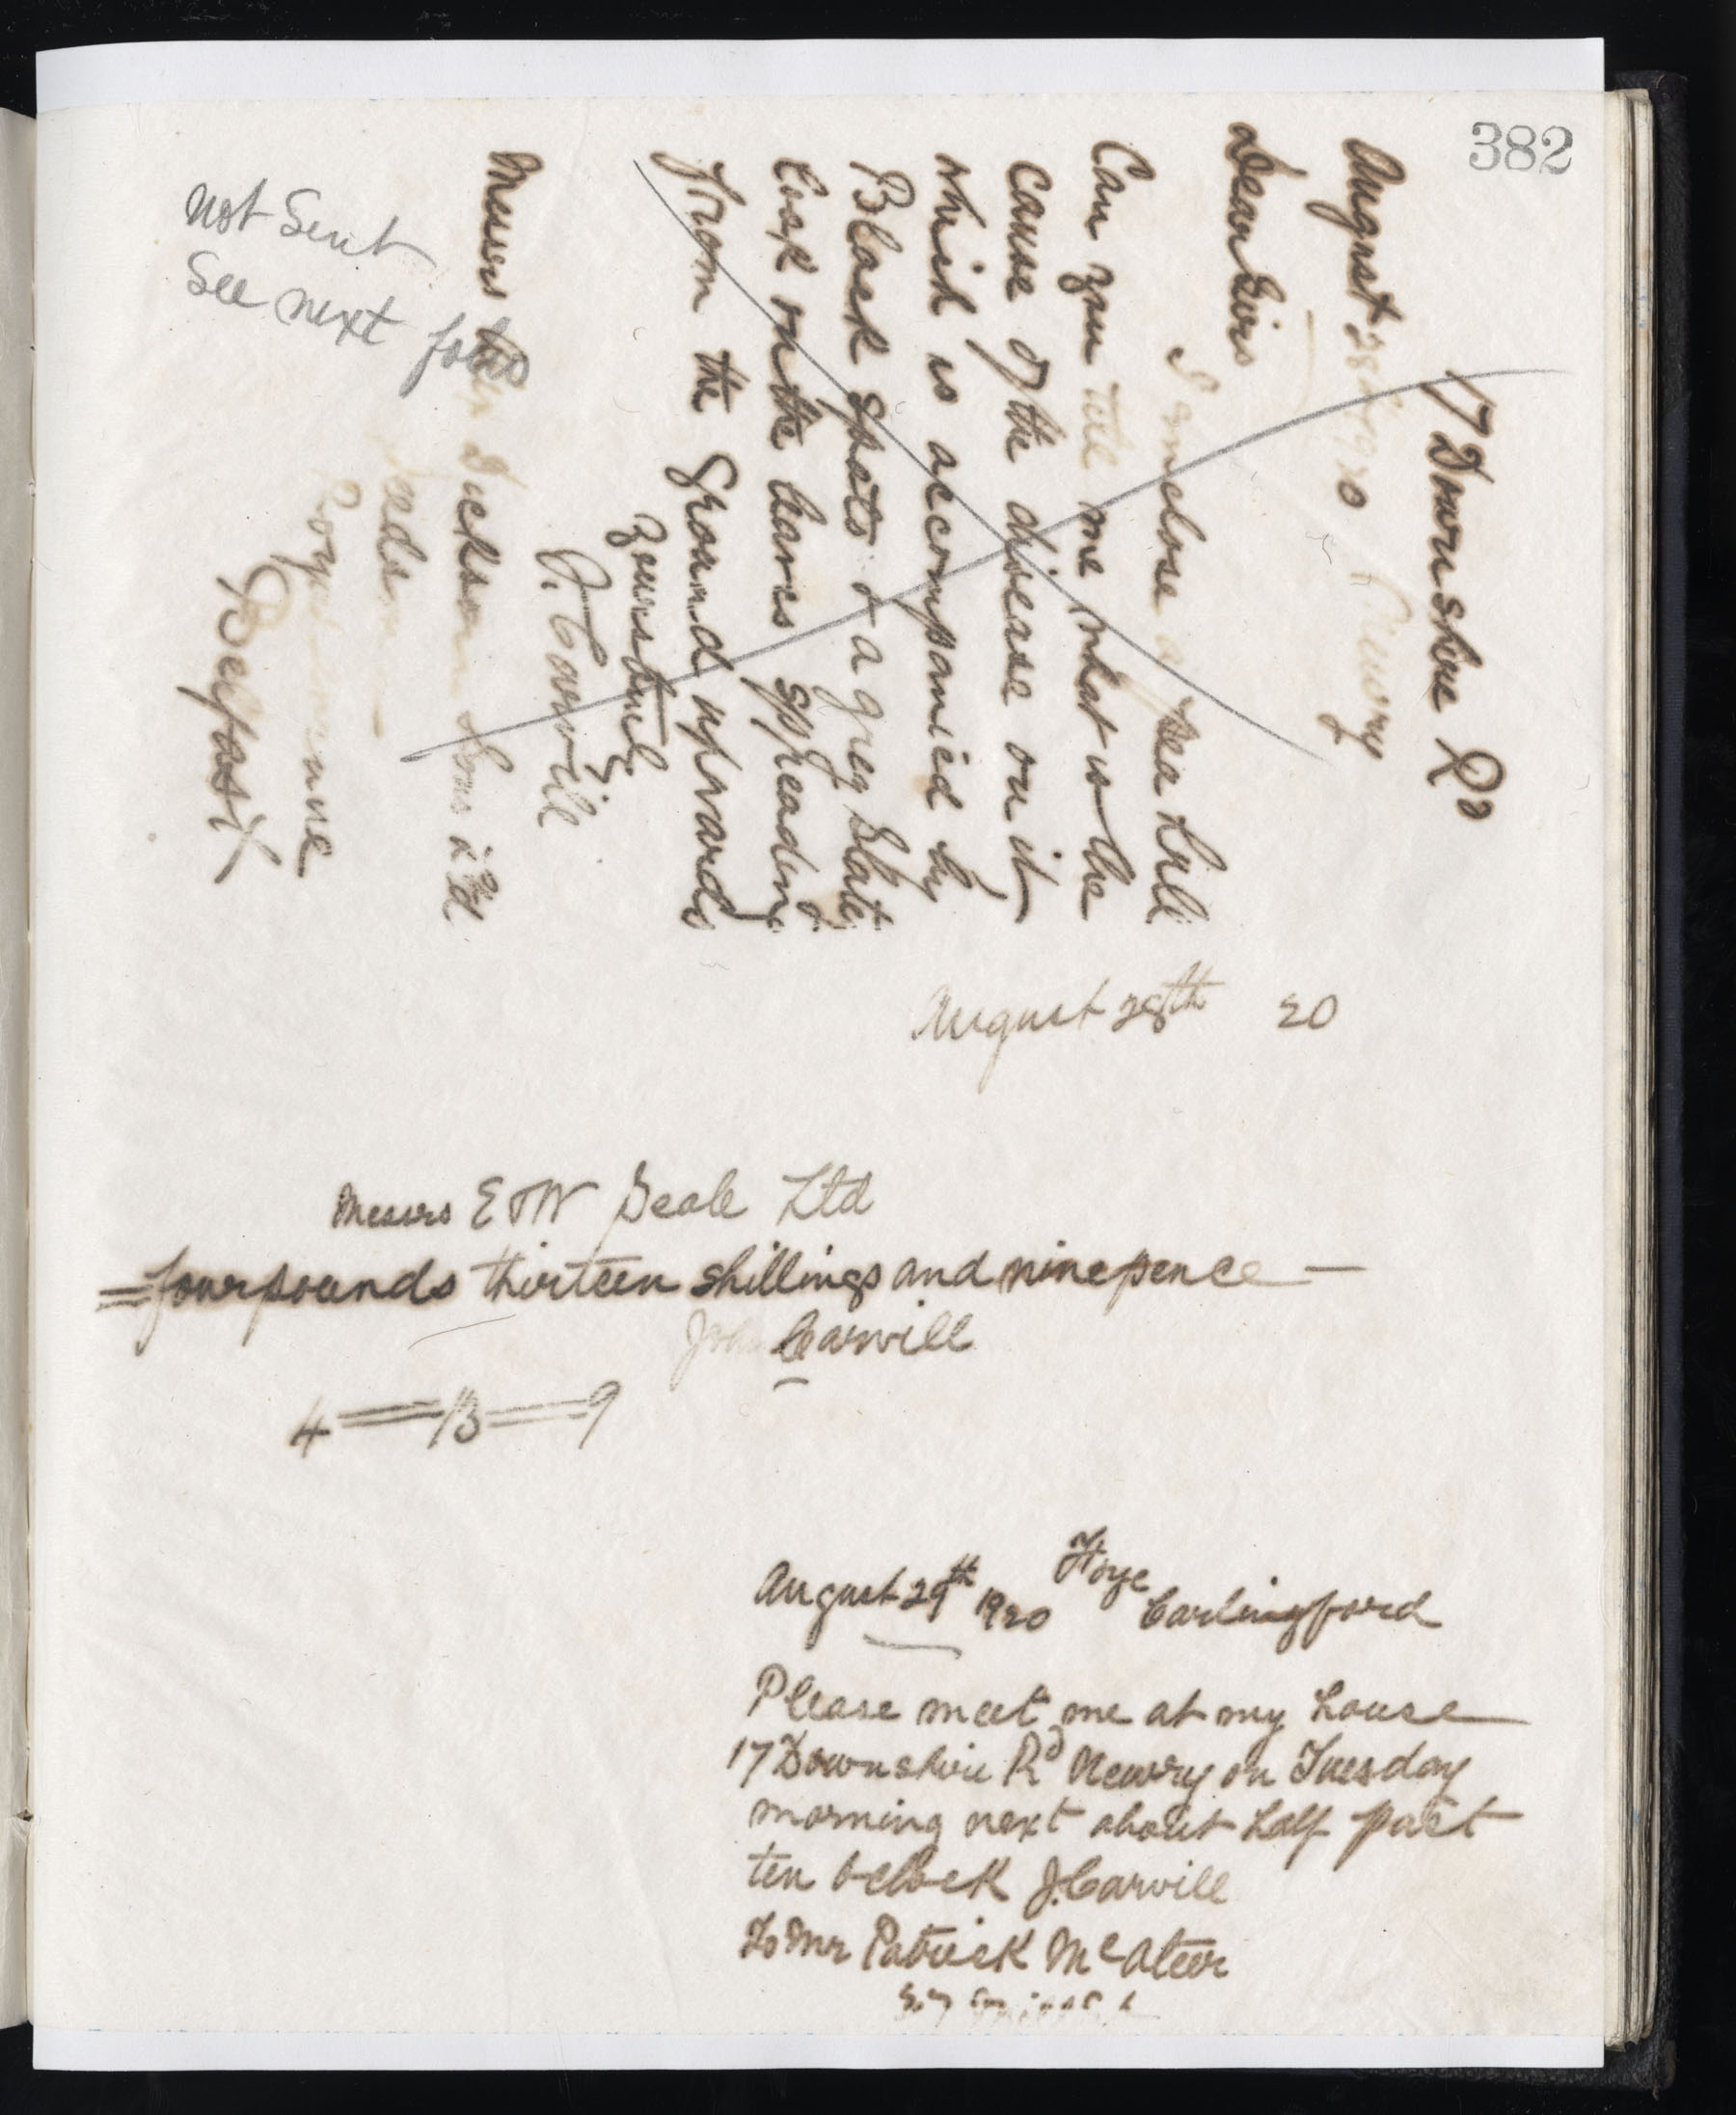 382
17 Downshire Rd
August 28th 1920 Newry
Dear Sirs
I enclose a pea
Can you tell me what is the
cause of the disease on it
which is accompanied by
Black spots & a grey slatey
look on the leaves spreading
from the Ground upwards
Yours truly
J. Carvill
Messrs Dickson Sons
Belfast
Not Sent
See next
August 28th 20
Messrs E & W Seale Ltd
=four pounds thirteen shillings and ninepence—
John Carvill
4 == 13 == 9
Ffoye
August 29th 1920 Carlingford
Please meet me at my house
17 Downshire Rd Newry on Tuesday
morning next about half past
ten o'clock J. Carvill
To Mr Patrick McAteer